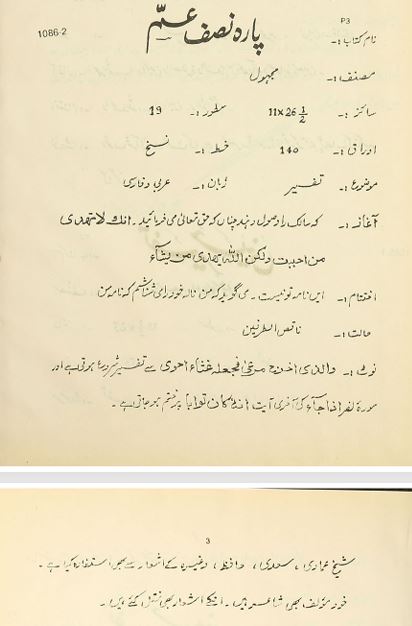 P3
1086-2
پاره نصف عمّ
نام کتاب :-
مصنف :- مجہول
سائز :- 11x26 1/2 سطور :- 19
اوراق :- 140 خط :- نسخ
موضوع :- تفسیر زبان :- عربی و فارسی
آغاز :- که سالک را وصول دهند چنان که حق تعالی می فرماید . انك لا تهدی
من احببت ولكن الله یهدی من یشآء
اختتام :- این نامه تو نیست . می گوید که من نامه خود را می شناسم که نامه من
حالت :- ناقص الطرفین
نوٹ :- والذی اخرج المرعیٰ فجعله غثاء احویٰ سے تفسیر شروع ہوتی ہے اور
سورۂ نصر اذا جآء کی آخری آیت انه کان توابا پر ختم ہو جاتی ہے .
3
شیخ عطاری ، سعدی ، حافظ ، وغیرہ کے اشعار سے بھی استفادہ کیا ہے .
خود مؤلف بھی شاعر ہیں . اپنے اشعار بھی نقل کئے ہیں .